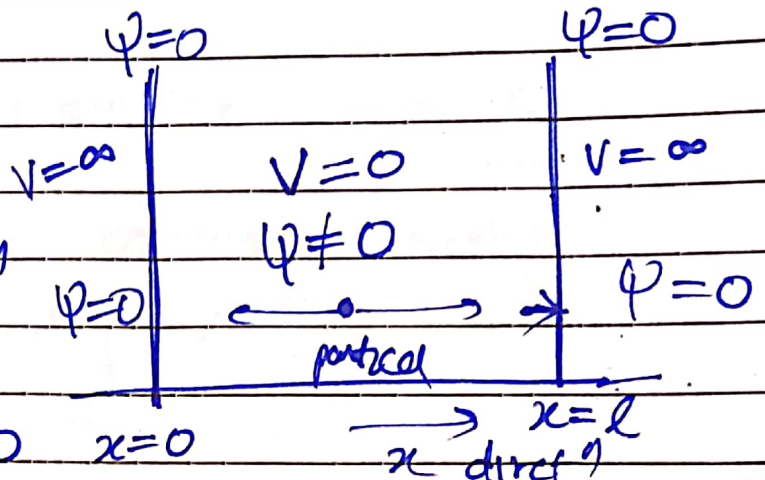 ψ=0 ψ=0
V=∞ V=0 V=∞
ψ≠0
ψ=0 ψ=0
partical
x=0 x=l
x direcⁿ